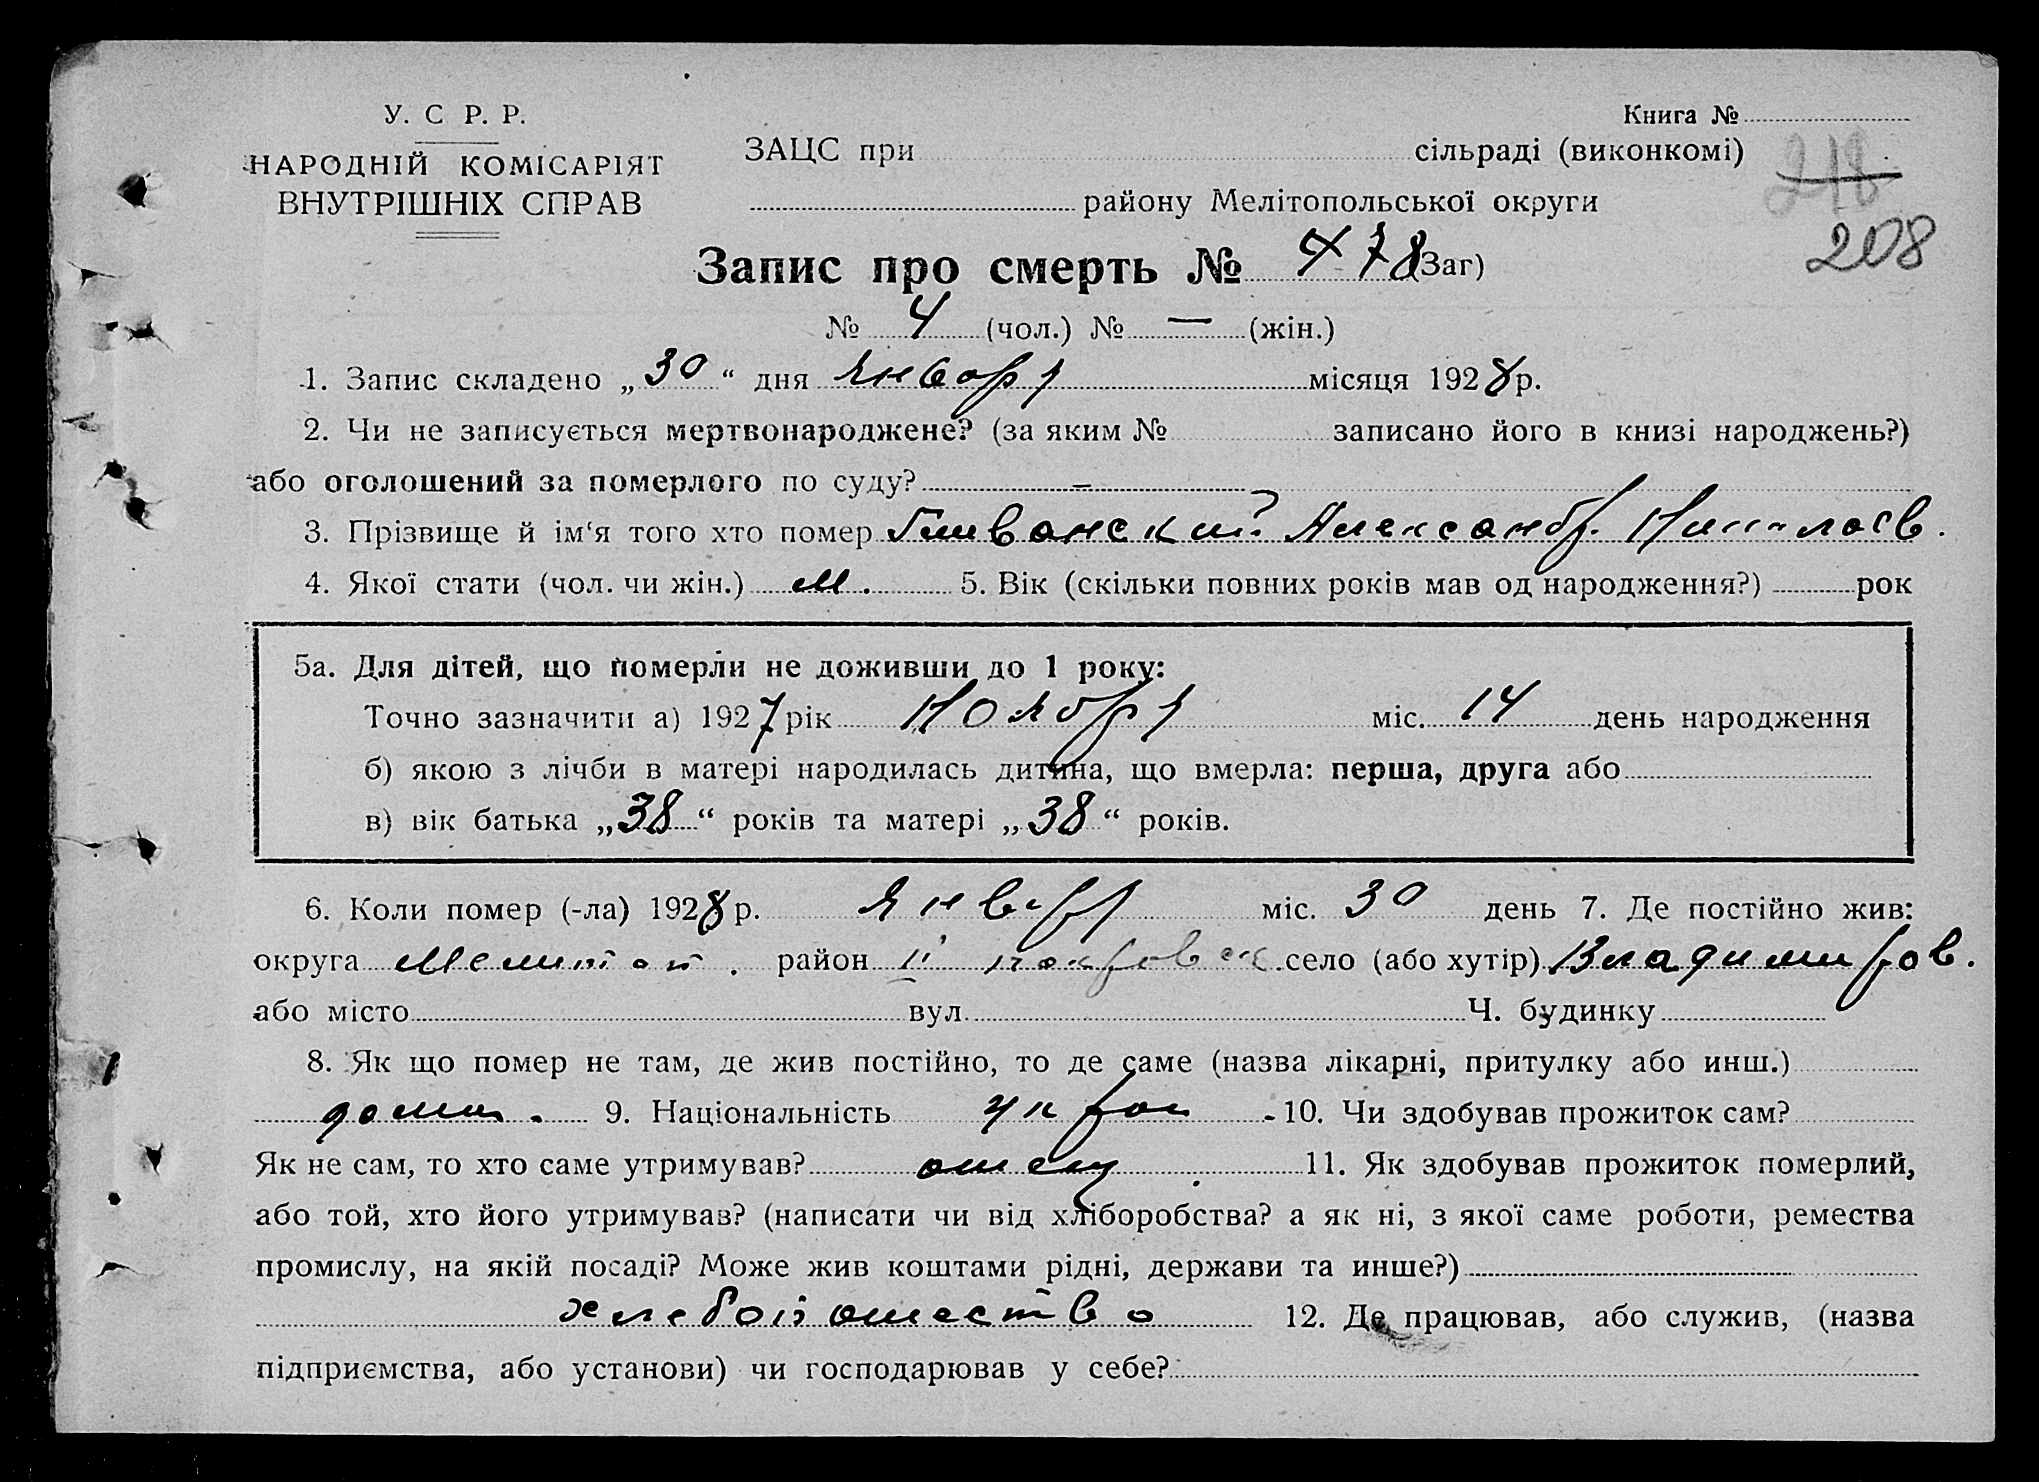 У. С Р. Р.
НАРОДНІЙ КОМІСАРІЯТ
ВНУТРІШНІХ СПРАВ
Книга №
ЗАЦС при сільраді (виконкомі)
218
району Мелітопольської округи
208
Запис про смерть № 478 (Заг)
№ 4 (чол.) № — (жін.)
1. Запис складено „30“ дня Января місяця 1928 р.
2. Чи не записується мертвонароджене? (за яким № записано його в книзі народжень?)
або оголошений за померлого по суду? —
3. Прізвище й ім‘я того хто помер Александр.
4. Якої стати (чол. чи жін.) м. 5. Вік (скільки повних років мав од народження?) рок
5а. Для дітей, що померли не доживши до 1 року:
Точно зазначити а) 1927 рік Ноября міс. 14 день народження
б) якою з лічби в матері народилась дитина, що вмерла: перша, друга або
в) вік батька „38“ років та матері „38“ років.
6. Коли помер (-ла) 1928 р. Январ міс. 30 день 7. Де постійно жив:
округа Мелитоп. район покровск. село (або хутір) Владимиров.
або місто вул. Ч. будинку
8. Як що помер не там, де жив постійно, то де саме (назва лікарні, притулку або инш.)
дома. 9. Національність 10. Чи здобував прожиток сам?
Як не сам, то хто саме утримував? отец 11. Як здобував прожиток померлий,
або той, хто його утримував? (написати чи від хліборобства? а як ні, з якої саме роботи, ремества
промислу, на якій посаді? Може жив коштами рідні, держави та инше?)
хлебопашество 12. Де працював, або служив, (назва
підприємства, або установи) чи господарював у себе?